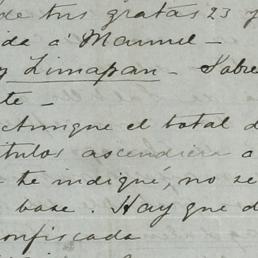 de tus gratas 23 y
ida á Manuel -
y Zimapan - Sobre
te -
Aunque el total d
ítulos ascendiera a
te indiqué, no se
base. Hay que d
onfiscada